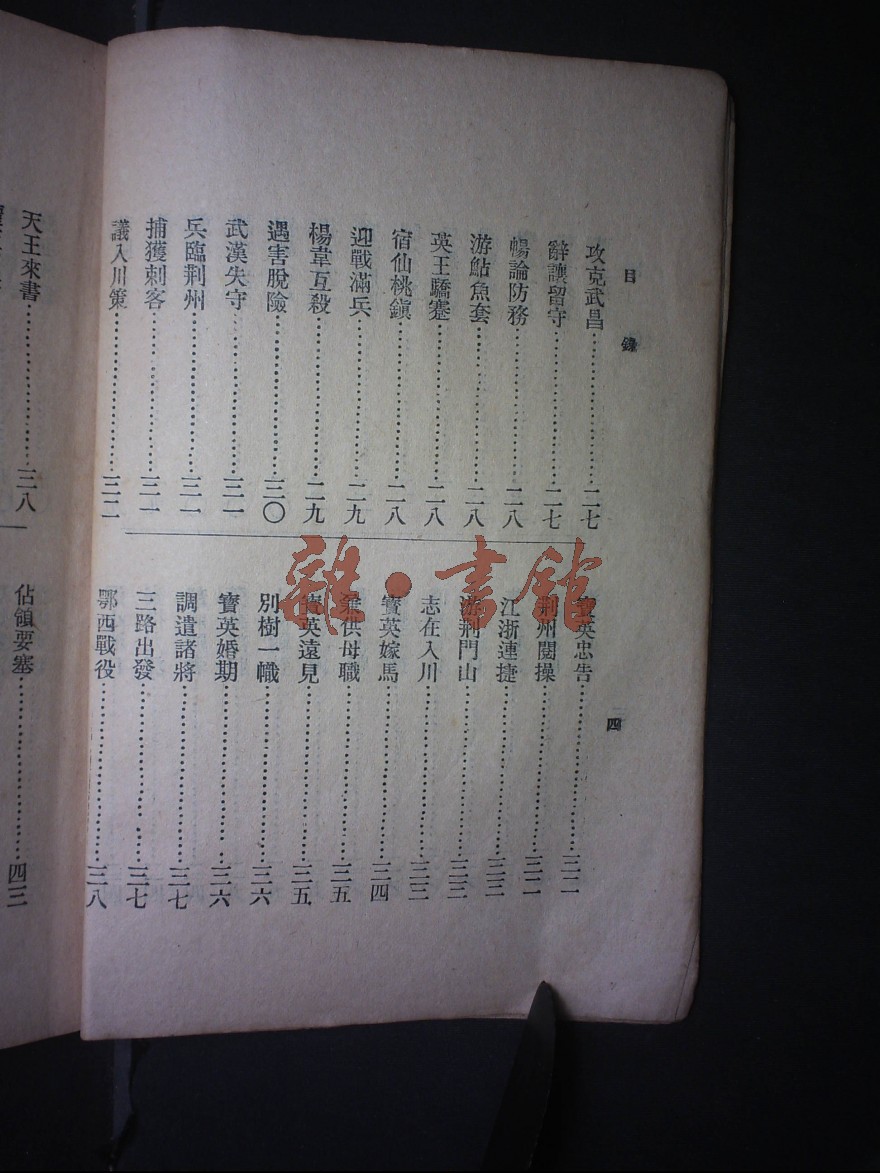 目錄
攻克武昌⋯⋯二七
辭讓留守⋯⋯二七
暢論防務⋯⋯二八
游鮎魚套⋯⋯二八
英王驕蹇⋯⋯二八
宿仙桃鎮⋯⋯二八
迎戰滿兵⋯⋯二九
楊韋互殺⋯⋯二九
遇害脫險⋯⋯三〇
武漢失守⋯⋯三一
兵臨荆州⋯⋯三一
捕獲刺客⋯⋯三一
議入川策⋯⋯三二
四
寶英忠告⋯⋯三二
荆州閱操⋯⋯三二
江浙連捷⋯⋯三三
游荆門山⋯⋯三三
志在入川⋯⋯三三
寶英嫁馬⋯⋯三四
兼供母職⋯⋯三五
寶英遠見⋯⋯三五
別樹一幟⋯⋯三六
寶英婚期⋯⋯三六
調遣諸將⋯⋯三七
三路出發⋯⋯三七
鄂西戰役⋯⋯三八
天王來書⋯⋯三八
佔領要塞⋯⋯四三
雜·書館